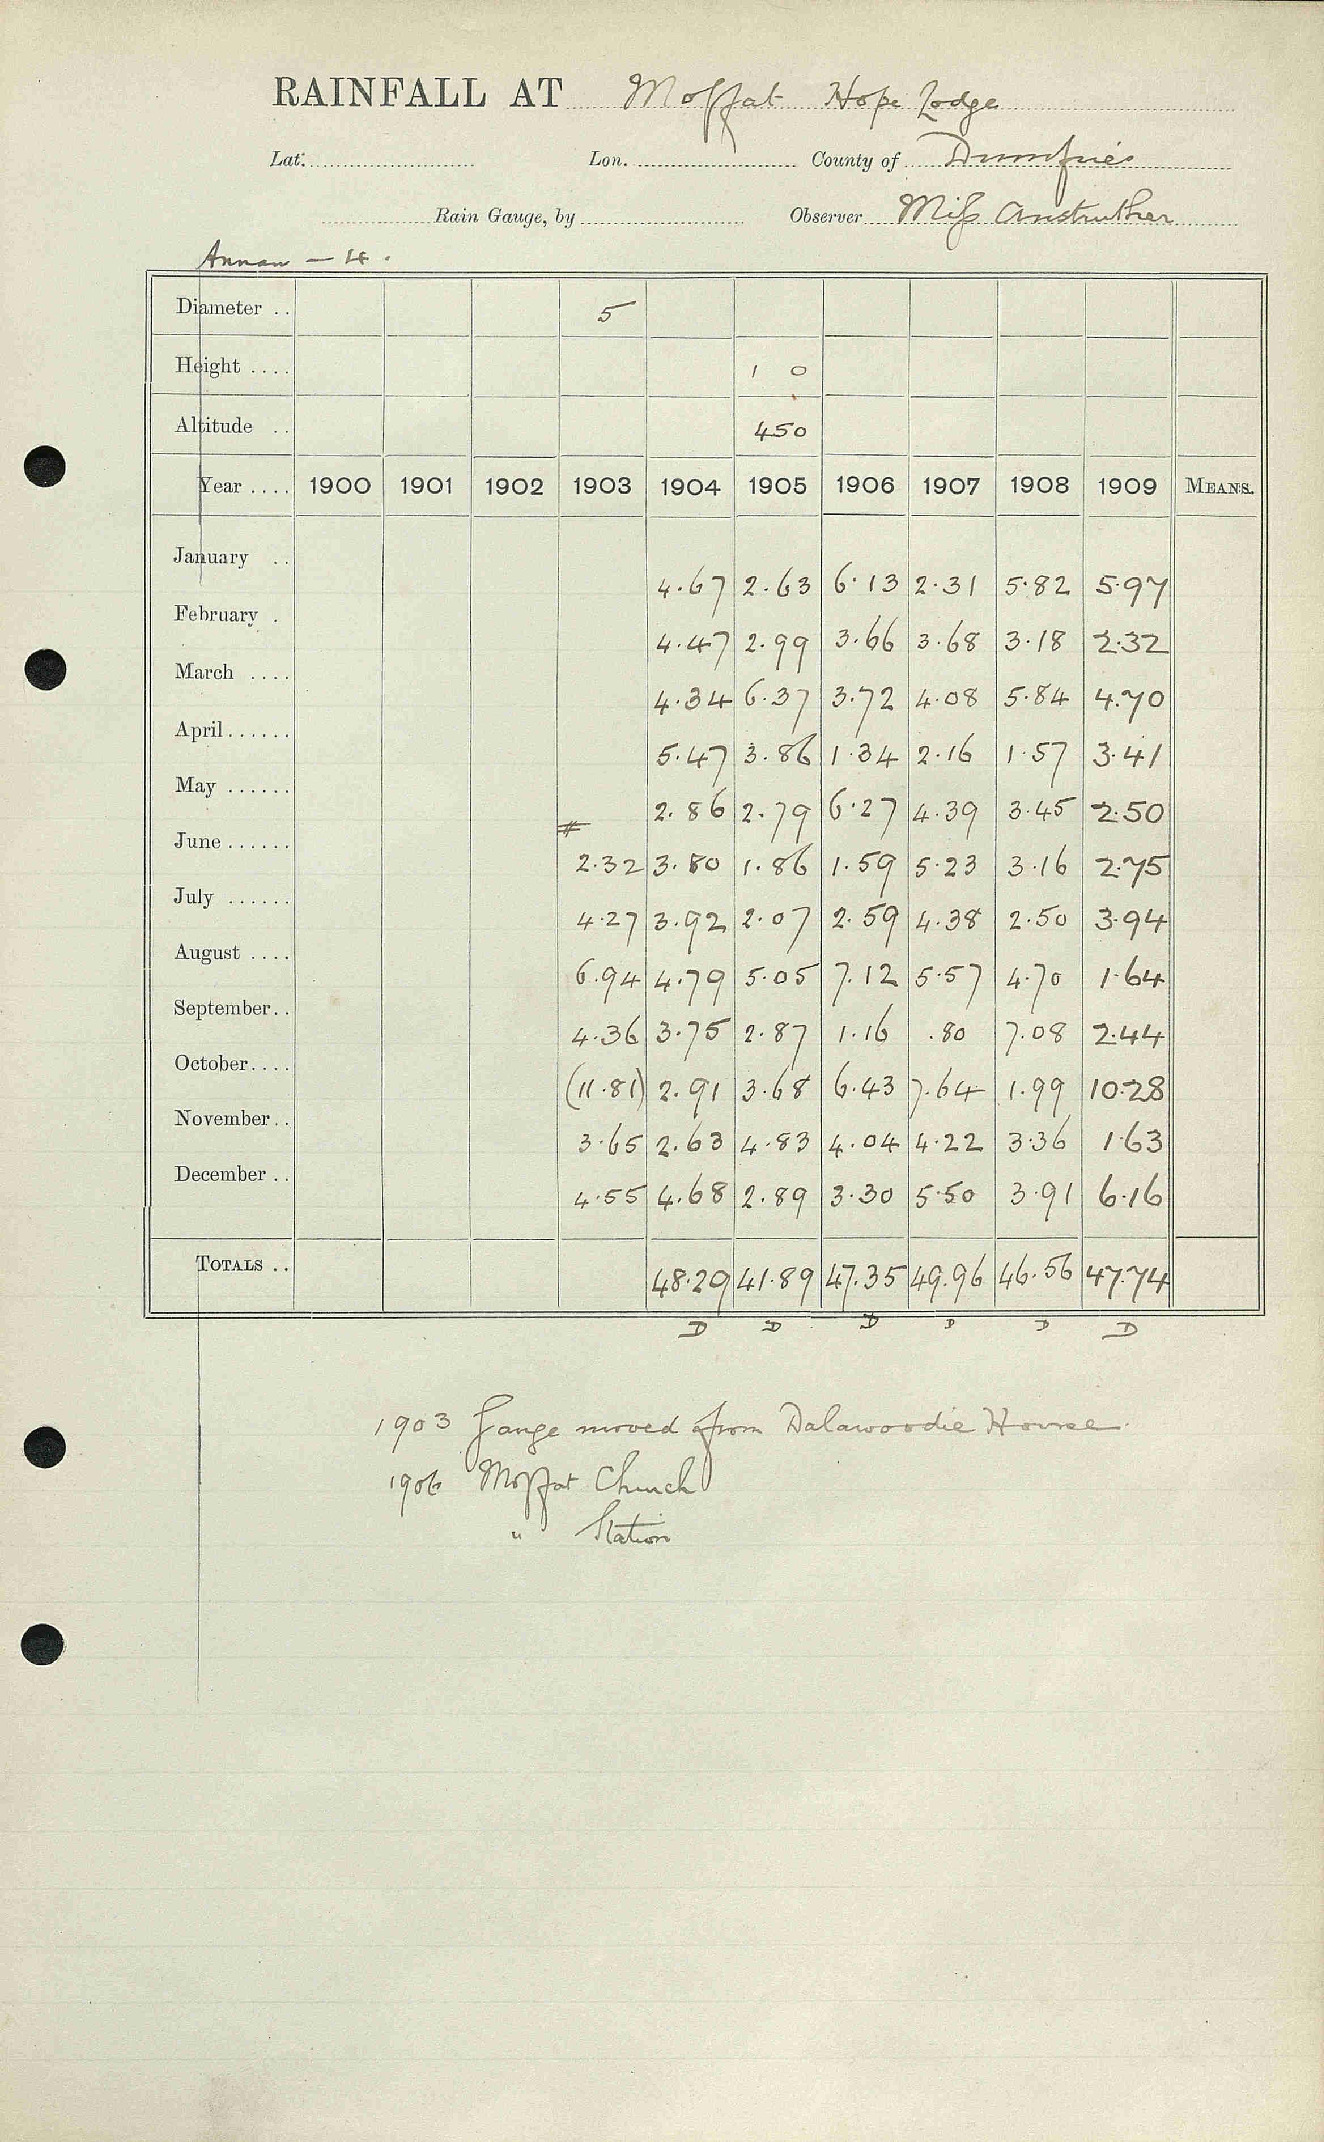 RAINFALL AT Moffat Hope Lodge
Lat. Lon. County of Dumfries
Rain Gauge, by Observer Miss Anstruther
Annan - 4.
Diameter .. 5
Height .... 1 0
Altitude .. 450
Year .... 1900 1901 1902 1903 1904 1905 1906 1907 1908 1909 MEANS.
January .. 4.67 2.63 6.13 2.31 5.82 5.97
February . 4.47 2.99 3.66 3.68 3.18 2.32
March .... 4.34 6.37 3.72 4.08 5.84 4.70
April...... 5.47 3.86 1.34 2.16 1.57 3.41
May ...... 2.86 2.79 6.27 4.39 3.45 2.50
June ...... # 2.32 3.80 1.86 1.59 5.23 3.16 2.75
July ...... 4.27 3.92 2.07 2.59 4.38 2.50 3.94
August .... 6.94 4.79 5.05 7.12 5.57 4.70 1.64
September.. 4.36 3.75 2.87 1.16 .80 7.08 2.44
October.... (11.81) 2.91 3.68 6.43 7.64 1.99 10.28
November.. 3.65 2.63 4.83 4.04 4.22 3.36 1.63
December .. 4.55 4.68 2.89 3.30 5.50 3.91 6.16
TOTALS .. 48.29 41.89 47.35 49.96 46.56 47.74
D D D D D D
1903 Gauge moved from Dalawoodie House.
1906 Moffat Church
" Station